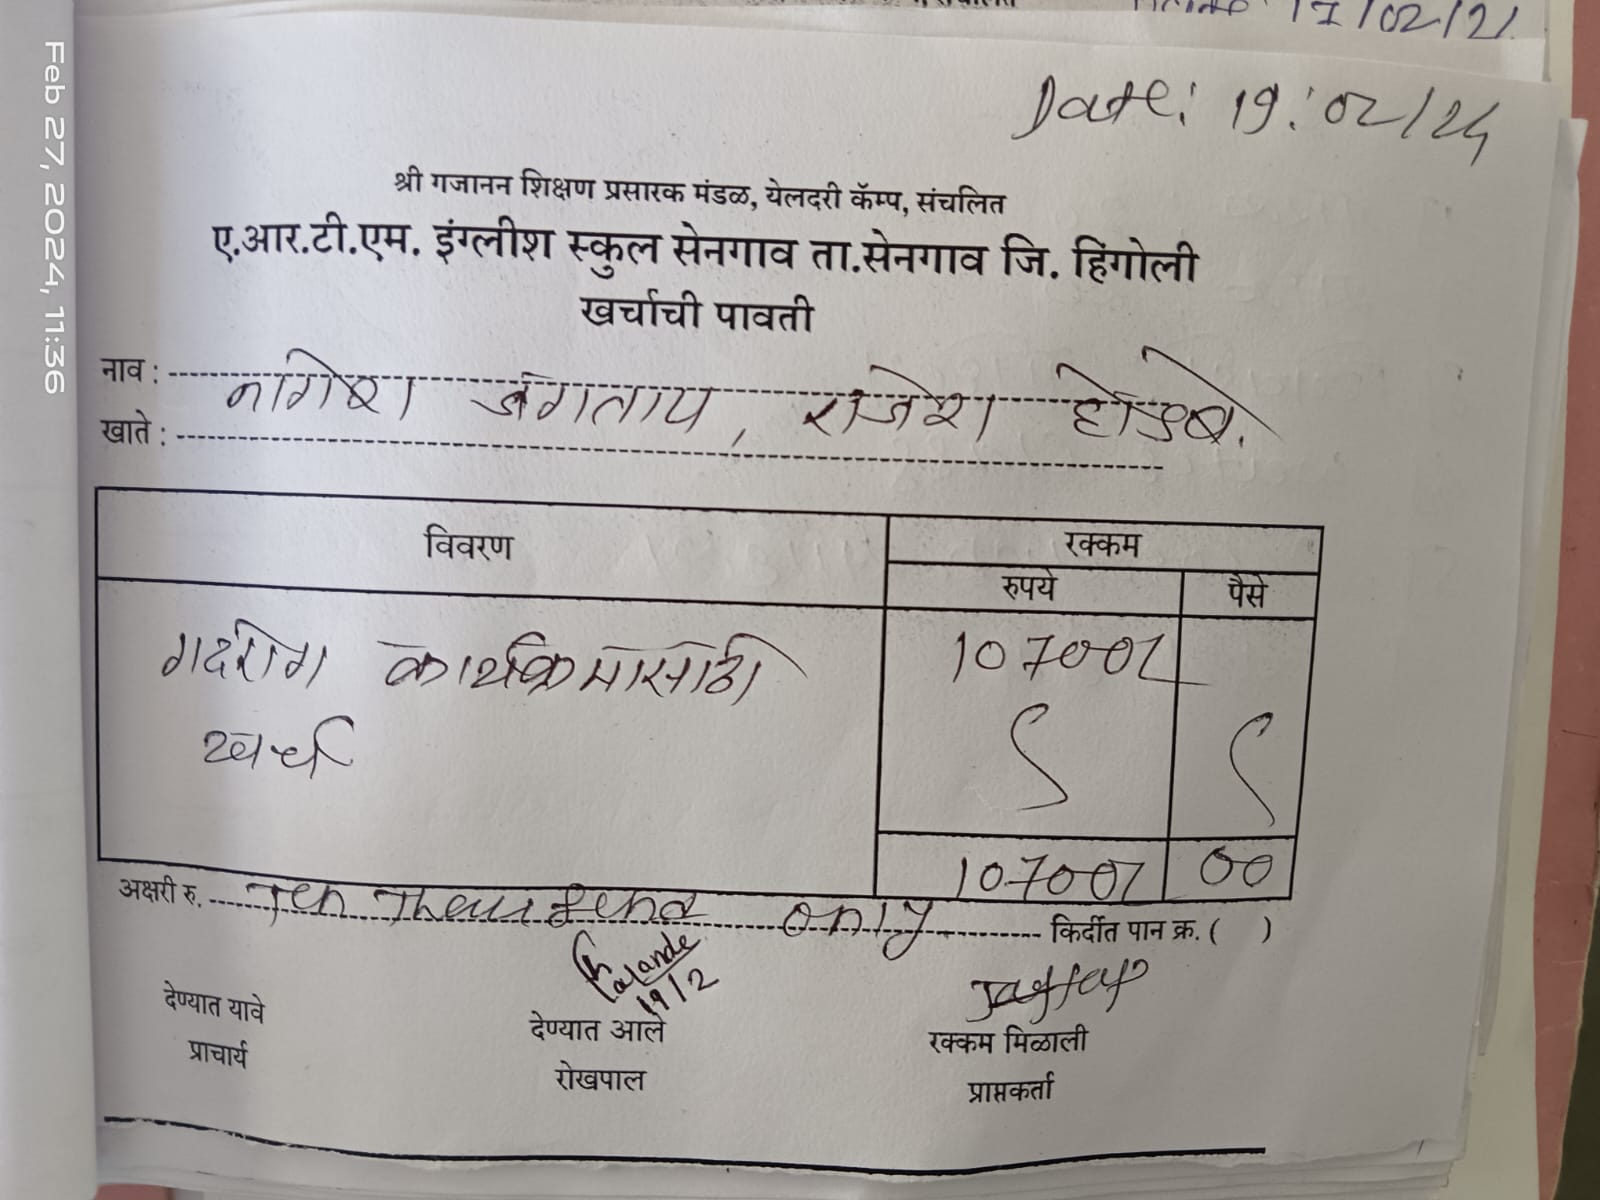 17/02/21
Date: 19:02/24
श्री गजानन शिक्षण प्रसारक मंडळ, येलदरी कॅम्प, संचलित
ए.आर.टी.एम. इंग्लीश स्कुल सेनगाव ता.सेनगाव जि. हिंगोली
खर्चाची पावती
नाव : नागेश जगताप, राजेश
खाते :
विवरण रक्कम
रुपये पैसे
कार्यक्रमासाठी 10700/
खर्च
10700/ 00
अक्षरी रु. Ten Thousend only किर्दीत पान क्र. ( )
19/2
देण्यात यावे देण्यात आले रक्कम मिळाली
प्राचार्य रोखपाल प्राप्तकर्ता
Feb 27, 2024, 11:36